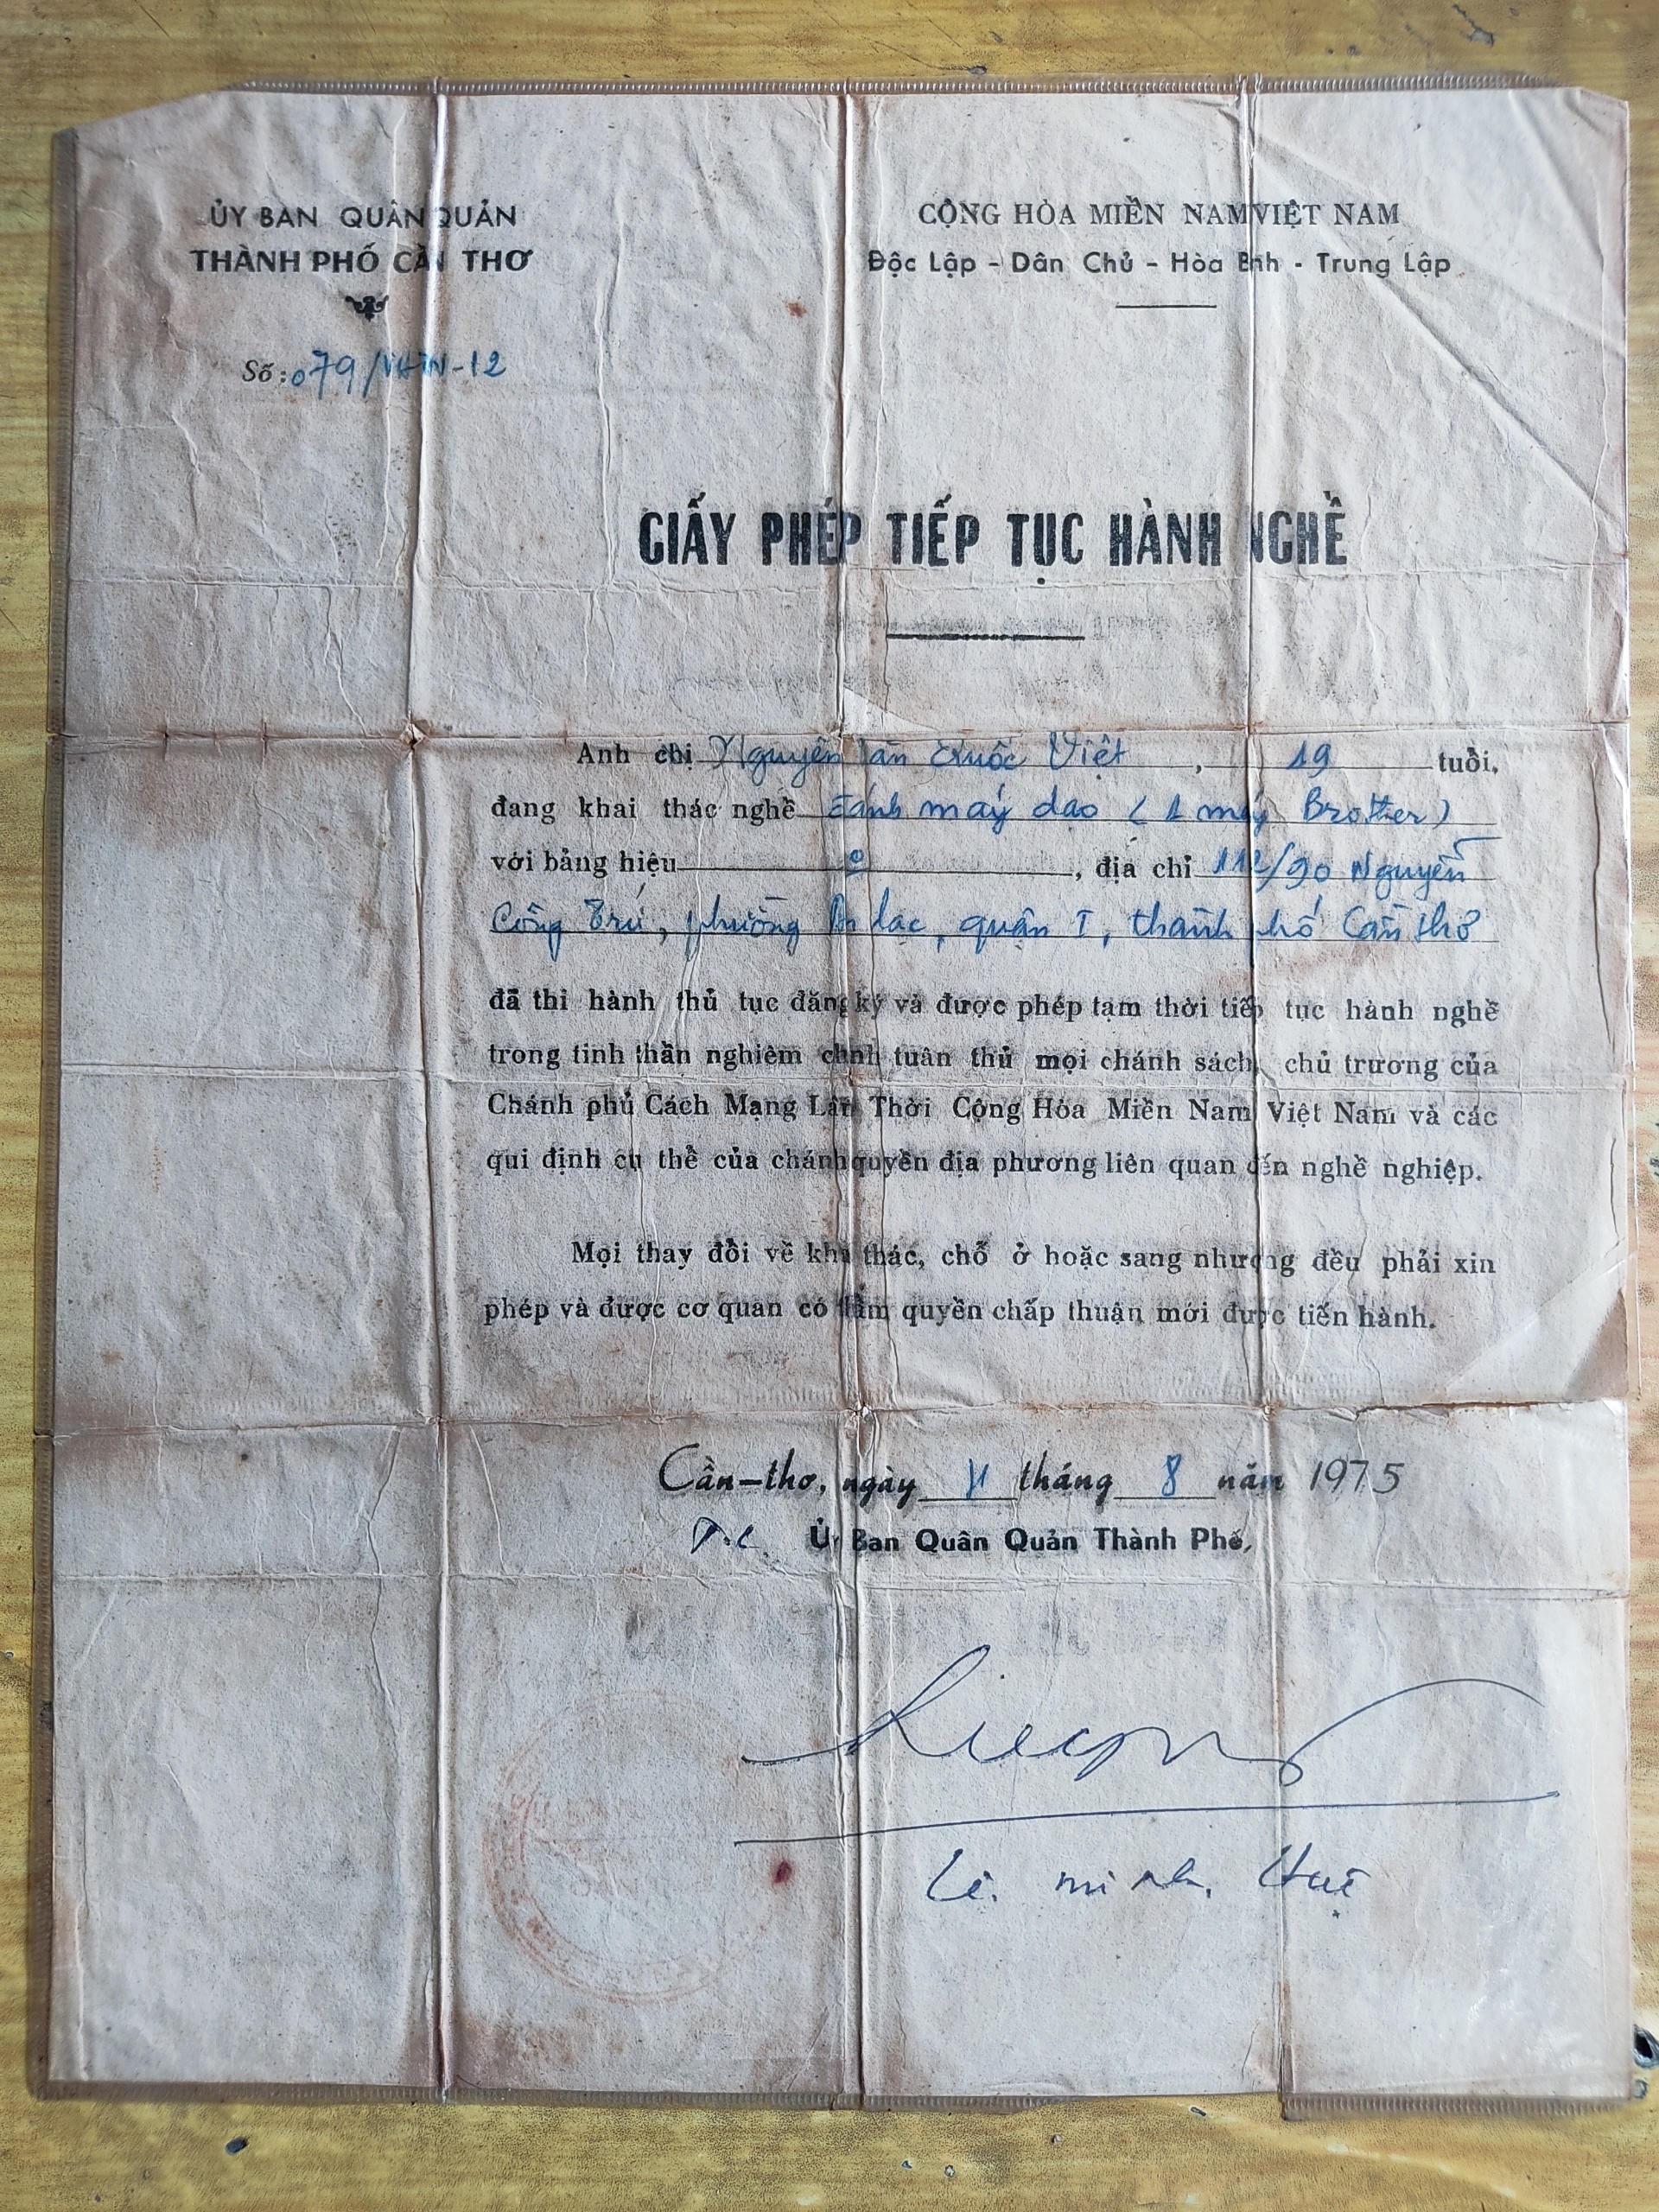 ỦY BAN QUÂN QUẢN
THÀNH PHỐ CẦN THƠ
CỘNG HÒA MIỀN NAM VIỆT NAM
Độc Lập - Dân Chủ - Hòa Bình - Trung Lập
Số: 079/
GIẤY PHÉP TIẾP TỤC HÀNH NGHỀ
Anh chị Nguyễn Tấn Quốc Việt, 19 tuổi,
đang khai thác nghề Đánh máy dạo (1 máy Brother)
với bảng hiệu 0, địa chỉ 112/90 Nguyễn
Công Trứ, phường An lạc, quận I, thành phố Cần thơ
đã thi hành thủ tục đăng ký và được phép tạm thời tiếp tục hành nghề
trong tinh thần nghiêm chỉnh tuân thủ mọi chánh sách, chủ trương của
Chánh phủ Cách Mạng Lâm Thời Cộng Hòa Miền Nam Việt Nam và các
qui định cụ thể của chánh quyền địa phương liên quan đến nghề nghiệp.
Mọi thay đổi về khai thác, chỗ ở hoặc sang nhượng đều phải xin
phép và được cơ quan có thẩm quyền chấp thuận mới được tiến hành.
Cần-thơ, ngày tháng 8 năm 1975
Ủy Ban Quân Quản Thành Phố,
Lê minh Huệ